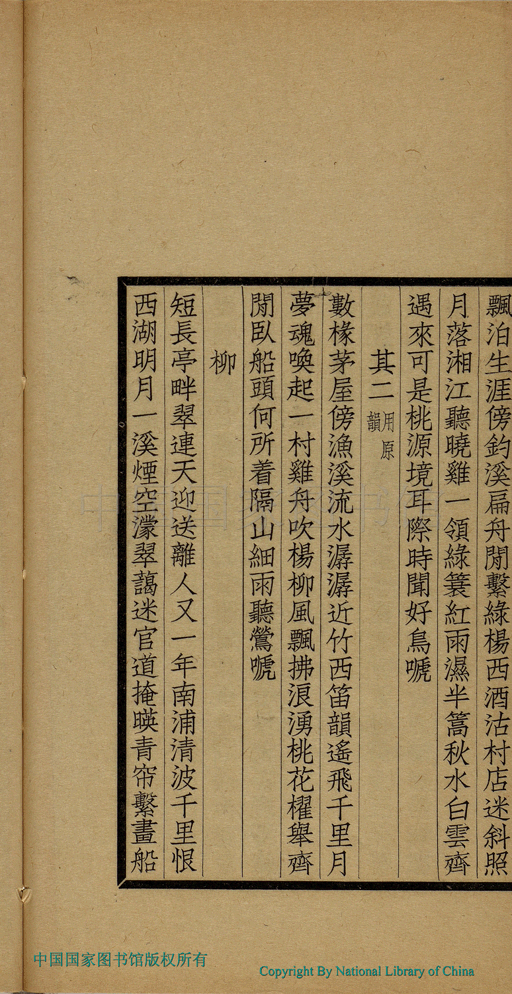 飄泊生涯傍釣溪扁舟閒繫綠楊西酒沽村店迷斜照
月落湘江聽曉雞一領綠蓑紅雨濕半篙秋水白雲齊
遇來可是桃源境耳際時聞好鳥嗁
其二用原韻
數椽茅屋傍漁溪流水潺潺近竹西笛韻遙飛千里月
夢魂喚起一村雞舟吹楊柳風飄拂浪湧桃花櫂舉齊
閒臥船頭何所着隔山細雨聽鶯嗁
柳
短長亭畔翠連天迎送離人又一年南浦清波千里恨
西湖明月一溪煙空濛翠藹迷官道掩暎青帘繫畫船
中国国家图书馆版权所有
Copyright By National Library of China